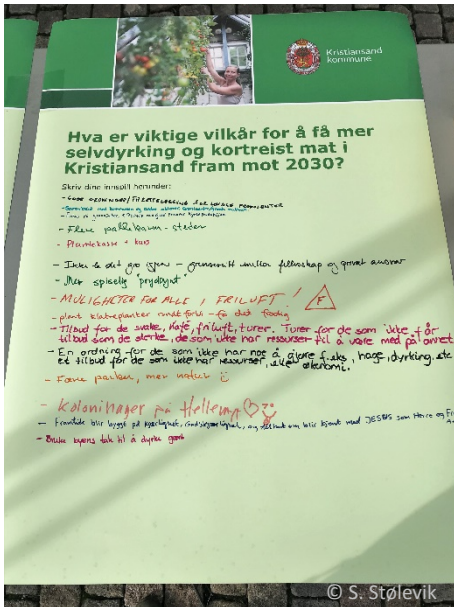 Kristiansand
kommune
Hva er viktige vilkår for å få mer
selvdyrking og kortreist mat i
Kristiansand fram mot 2030?
Skriv dine innspill herunder:
- GODE ORDNINGER / TILRETTELEGGING FOR LOKALE PRODUSENTER
- Flere pallekarm-steder
- Plantekasse + kurs
- Ikke la det gro igjen - grensesnitt mellom fellesskap og privat ansvar
- Mer spiselig prydbynt
- MULIGHETER FOR ALLE I FRILUFT!
F
- plant klatreplanter rundt
- Tilbud for de svake, Kafé, friluft, turer. Turer for de som ikke får
tilbud som de sterke, de som ikke har ressurser til å være med på annet
- En ordning for de som ikke har noe å gjøre f.eks, hage, dyrking, etc
et tilbud for de som ikke har ressurser, eller økonomi.
- Færre parker, mer natur
- Kolonihager på Hellemyr
- Framtida blir bygd på kjærlighet, og blir kjent med JESUS som Herre og
- Bruke byens tak til å dyrke
© S. Stølevik